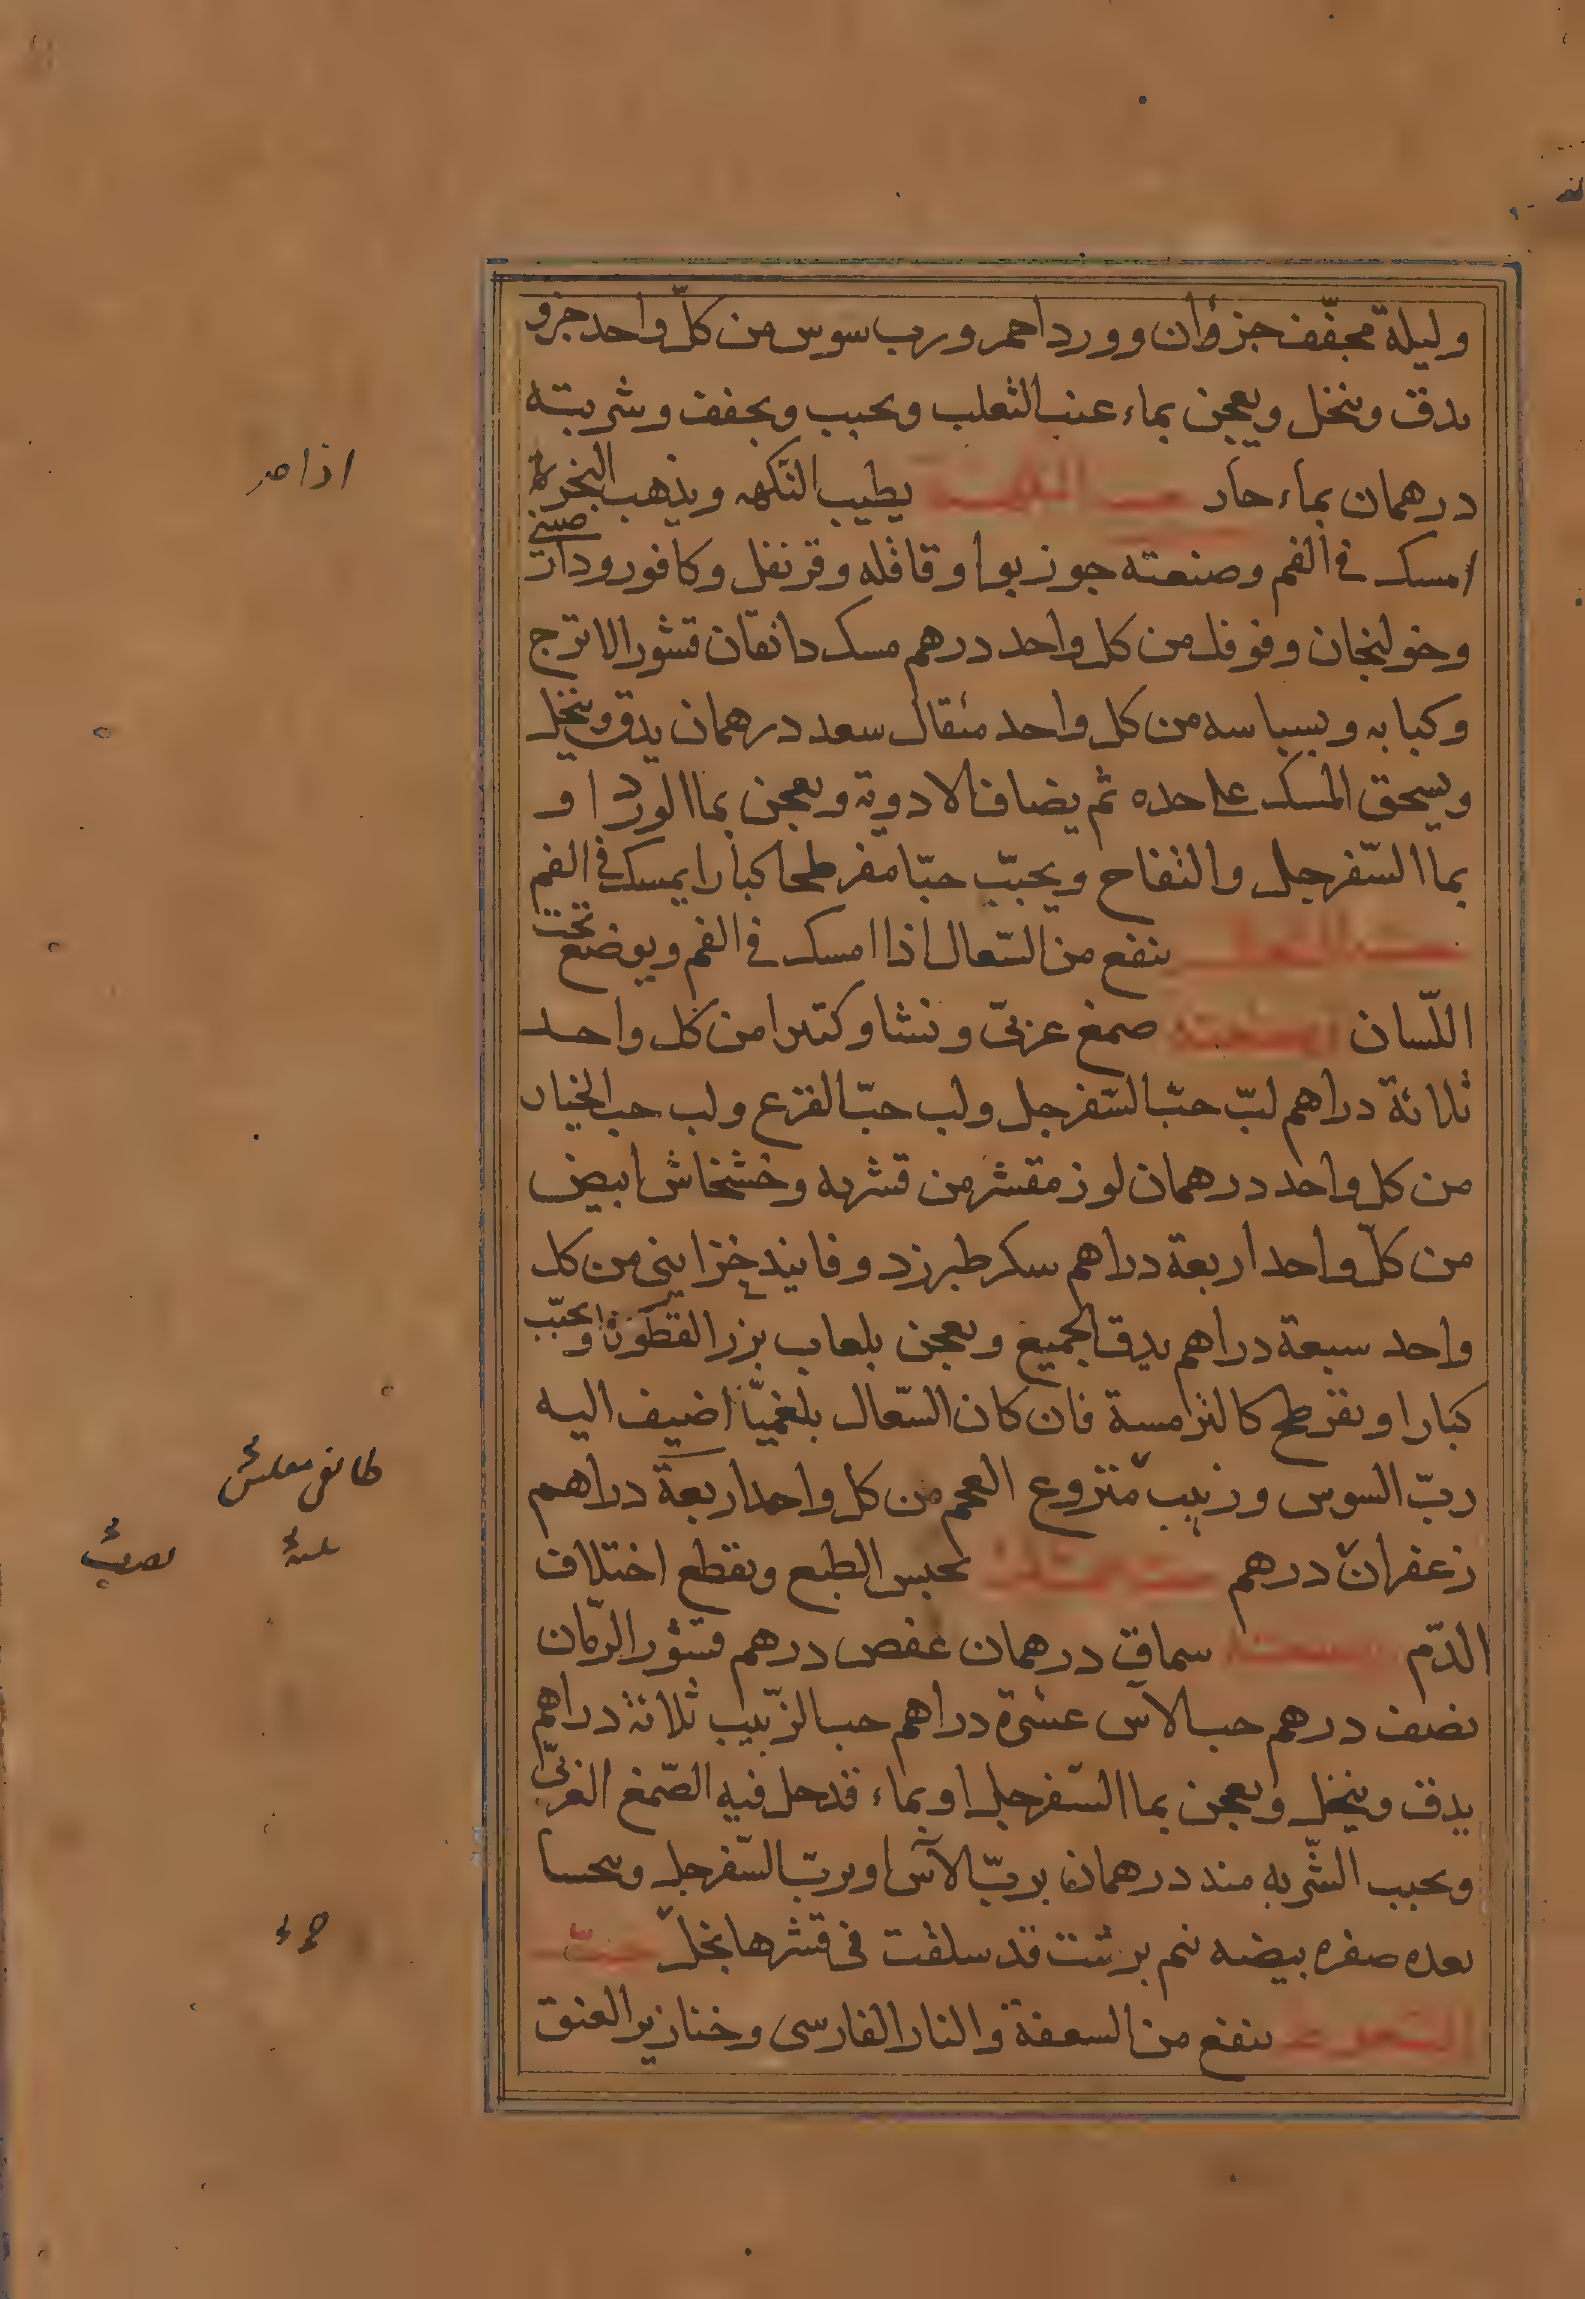 وليلة مجفّف جزؤان وورد احمر ورب سوس من كلّ واحد جزو
يدق وينخل ويعجن بماء عنب الثعلب ويحبب ويجفف وشربته
درهمان بماء حار حب النكهة يطيب النكهه ويذهب البخر اذا
امسك في الفم وصنعته جوز بوا وقاقله وقرنفل وكافور ودار صيني
وخولنجان وفوفل من كل واحد درهم مسك دانقان قشور الاترج
وكبابه وبسباسه من كل واحد مثقال سعد درهمان يدق وينخل
ويسحق المسك على حده ثم يضاف الادوية ويعجن بما الورد او
بما السّفرجل والتفاح ويحبّب حبّا مفرطحا كبارا يمسك في الفم
حب السعال ينفع من السّعال اذا امسك في الفم ويوضع تحت
اللّسان وصنعته صمغ عربيّ ونشا وكتيرا من كل واحد
ثلاثة دراهم لبّ حبّ السّفرجل ولب حبّ القرع ولب حب الخيار
من كل واحد درهمان لوز مقشر من قشريه وخشخاش ابيض
من كلّ واحد اربعة دراهم سكر طبرزد وفانيذ خزايني من كل
واحد سبعة دراهم يدق الجميع ويعجن بلعاب بزر القطونا ويحبّب
كبارا ويفرطح كالترامسة فان كان السّعال بلغميّا اضيف اليه
ربّ السوس وزبيب منزوع العجم من كل واحد اربعة دراهم
زعفران درهم يحبس الطبع ويقطع اختلاف
الدّم وصنعته سماق درهمان عفص درهم قشور الرّمان
نصف درهم حب الآس عشرة دراهم حب الزّبيب ثلاثة دراهم
يدق وينخل ويعجن بما السّفرجل او بماء قد حل فيه الصّمغ العربيّ
ويحبب الشّربه منه درهمان بربّ الآس او بربّ السّفرجل ويحسا
بعده صفره بيضه نيم برشت قد سلقت في قشرها بخلّ حبّ
ينفع من السعفة والنار الفارسي وخنازير العنق
اذا صر